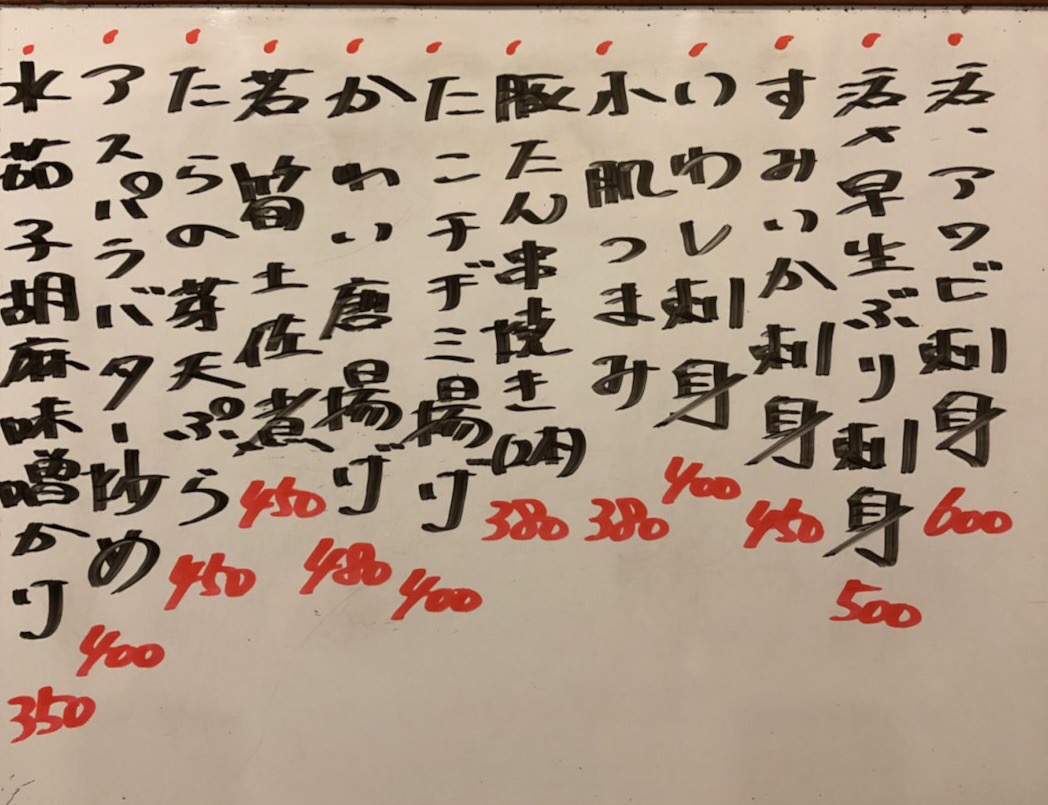 活、アワビ刺身 600
活〆早生ぶり刺身 500
すみいか刺身 450
いわし刺身 400
小肌つまみ 380
豚たん串焼き(2本) 380
たこチヂミ揚げ 400
かわい唐揚げ 480
若筍土佐煮 450
たらの芽天ぷら 450
アスパラバター炒め 400
水茄子胡麻味噌かけ 350